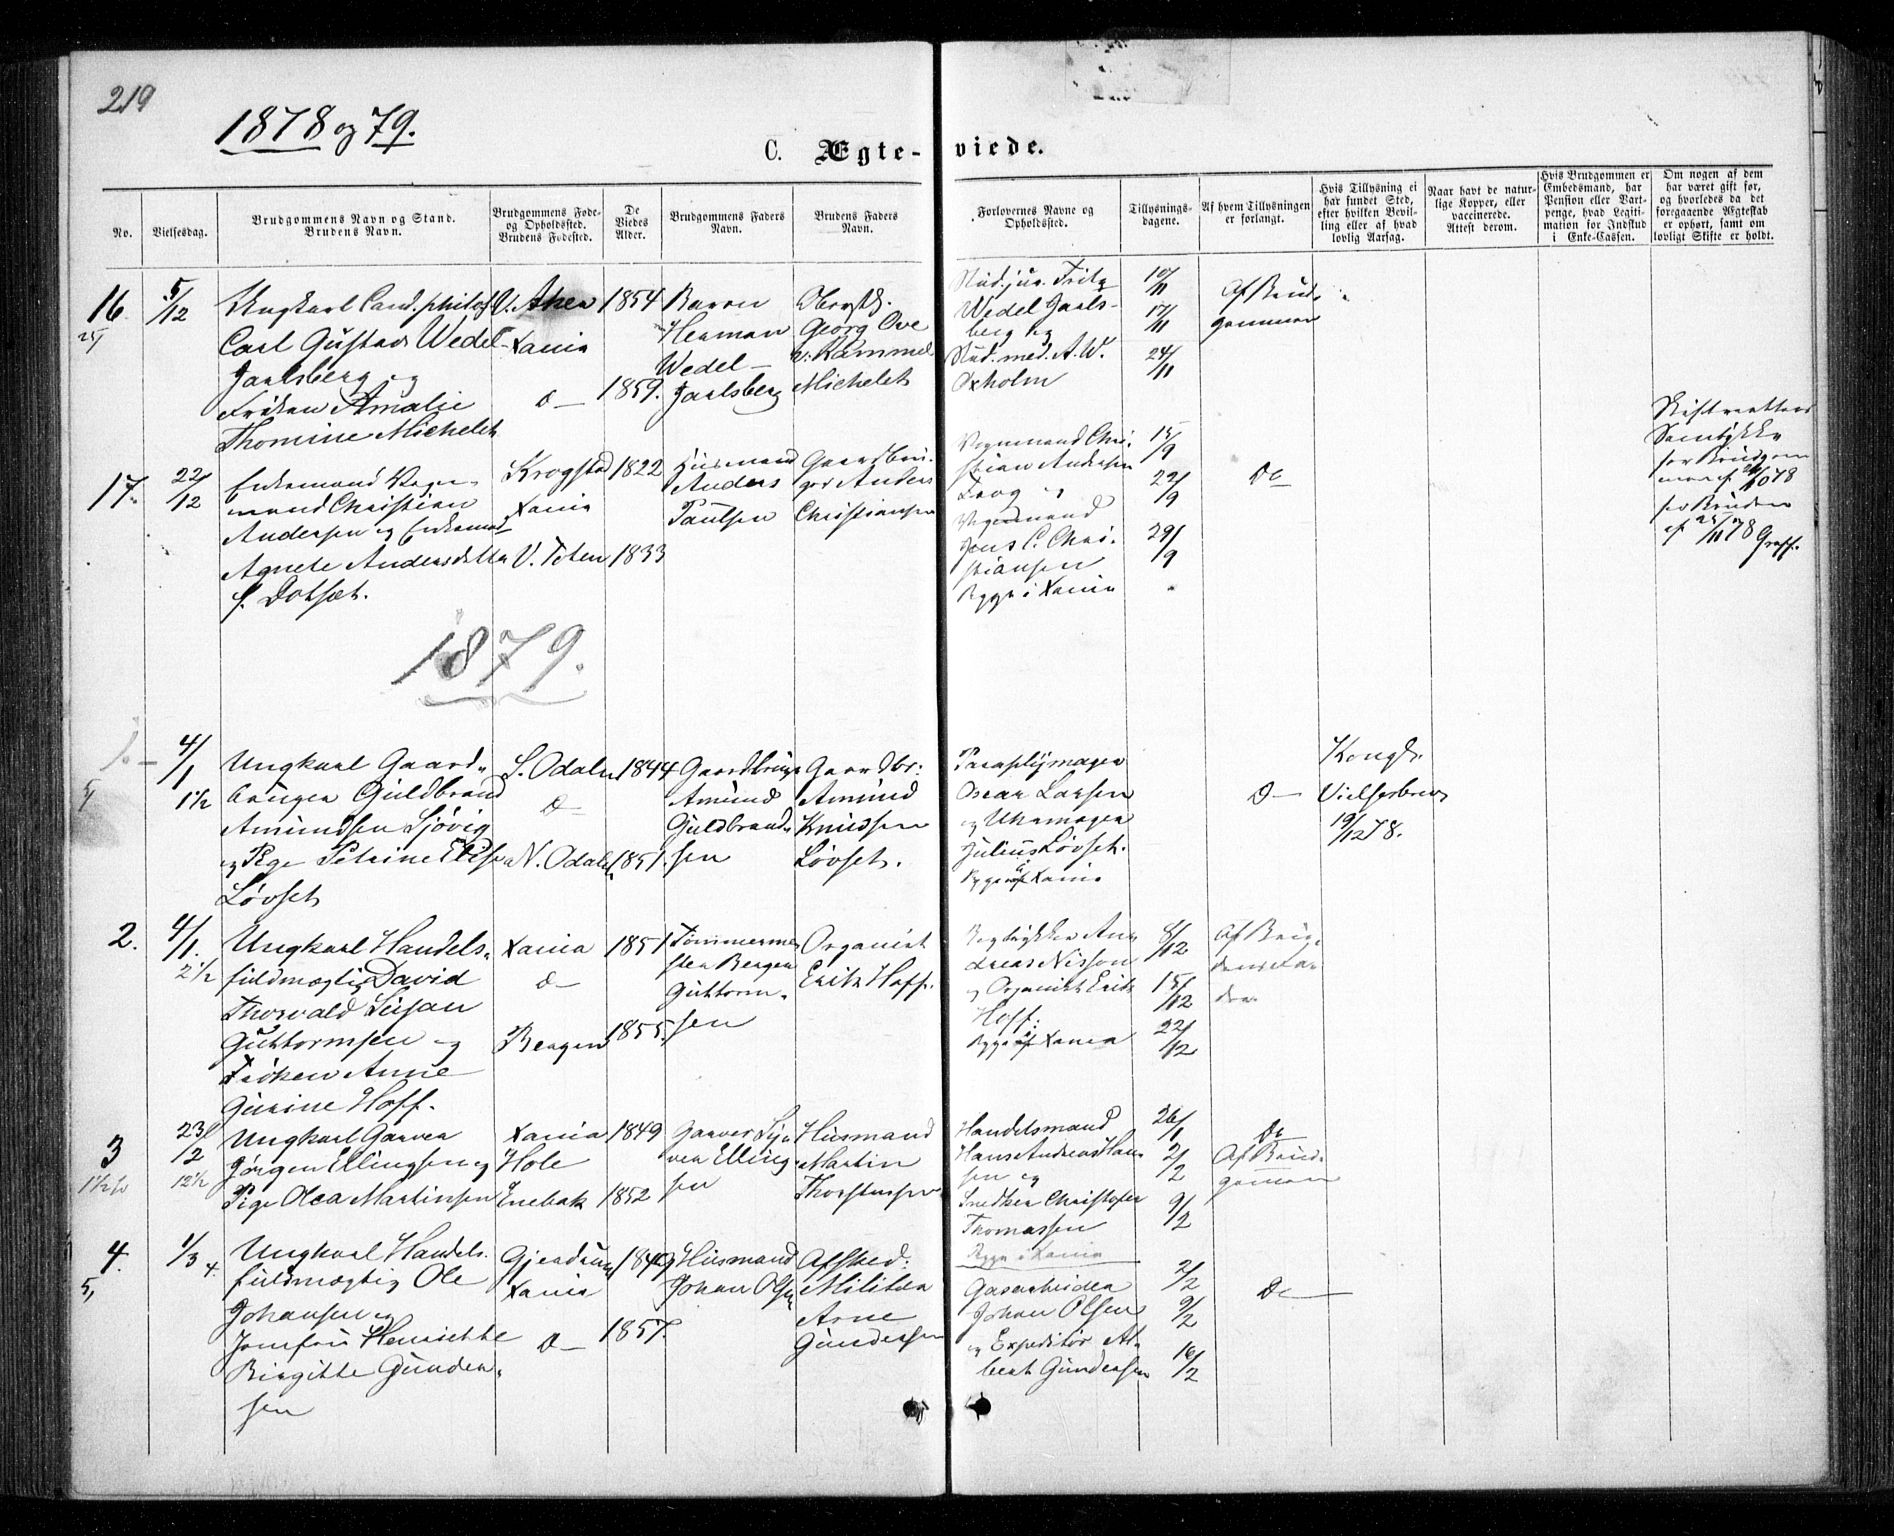 219
1878 og 79.
C. Ægte-viede.
No.
Vielsesdag.
Brudgommens Navn og Stand.
Brudens Navn.
Brudgommens Føde-
og Opholdssted.
Brudens Fødested.
De
Viedes
Alder.
Brudgommens Faders
Navn.
Brudens Faders
Navn.
Forlovernes Navne og
Opholdssted.
Tillysnings-
dagene.
Af hvem Tillysningen
er forlangt.
Hvis Tillysning ei
har fundet Sted,
efter hvilken Bevil-
ling eller af hvad
lovlig Aarsag.
Naar havt de natur-
lige Kopper, eller
vaccinerede.
Attest derom.
Hvis Brudgommen er
Embedsmand, har
Pension eller Vart-
penge, hvad Legiti-
mation for Indskud
i Enke-Cassen.
Om nogen af dem
har været gift før,
og hvorledes da det
foregaaende Ægteskab
er ophørt, samt om
lovligt Skifte er holdt.
16
5/12
Ungkarl Cand. philos.
Carl Gustav Wedel-
Jarlsberg og
Frøken Amalie
Thomine Michelet
V. Aker
Xania
d—
1854
1859.
Baron
Herman
Wedel-
Jarlsberg
Oberstl.
Georg Ove
v. Rømmel
Michelet
Stud. jur. Fritz
Wedel Jarls-
berg og
Stud. med. A. W.
Oxholm
10/11
17/11
24/11
Af Brud-
gommen
17.
22/12
Enkemand Vogn-
mand Christian
Andersen og Enkemad.
Agnete Andersdatter
f. Dotset.
Krogstad
Xania
V. Toten
1822
1833
Husmand
Anders
Paulsen
Gaardbru-
ger Anders
Christiansen
Vognmand Chri-
stian Andersen
Frog og
Vognmand
Jens C. Chri-
stiansen
Begge i Xania
15/9
22/9
29/9
Do
Skifterettens
Samtykke
for Brudgom-
for Bruden
af 25/11 78 Graff.
1879.
1.
4/1
1½
Ungkarl Gaard-
bruger Guldbrand
Amundsen Sjøvig
og Pige Petrine Elise
Løvset
S. Odalen
d—
N. Odalen
1844
1851.
Gaardbruger
Amund
Guldbrand-
sen
Gaardbr.
Amund
Knudsen
Løvset.
Paraplymager
Oscar Larsen
og Uhrmager
Julius Løvset.
Begge af Xania
D—
Kongl.
Vielsesbrev
19/12 78.
2.
4/1.
2½
Ungkarl Handels-
fuldmægtig David
Thorvald Susan
Guttormsen og
Frøken Anne
Gurine Hoff.
Xania
d—
Bergen
1851
1855.
Tømmerme-
ster Bergen
Guttorm-
sen
Organist
Erik Hoff.
Bogtrykker An-
dreas Nisson
og Organist Erik
Hoff.
Begge af Xania
8/12
15/12
22/12
Af Bru-
3
23/2
12½
Ungkarl Garver
Jørgen Ellingsen og
Pige Olea Martinsen
Xania
Hole
Enebak
1849
1852
Garver Sy-
ver Elling-
sen
Husmand
Martin
Thorstensen
Handelsmand
Hans Andreas Han-
sen og
Snedker Christofer
Thomassen
Begge i Xania
26/1
2/2
9/2
Do
Af Brud-
gommen
4.
1/3
4.
Ungkarl Handels-
fuldmægtig Ole
Johansen og
Jomfru Henriette
Birgitte Gunder-
sen
Gjerdrum
Xania
d—
1849
1857.
Husmand
Johan Olsen
Afsked.
Militær
Arne
Gundersen
Gasarbeider
Johan Olsen
og Expeditør Al-
bert Gundersen
2/2
9/2
16/2
Do—